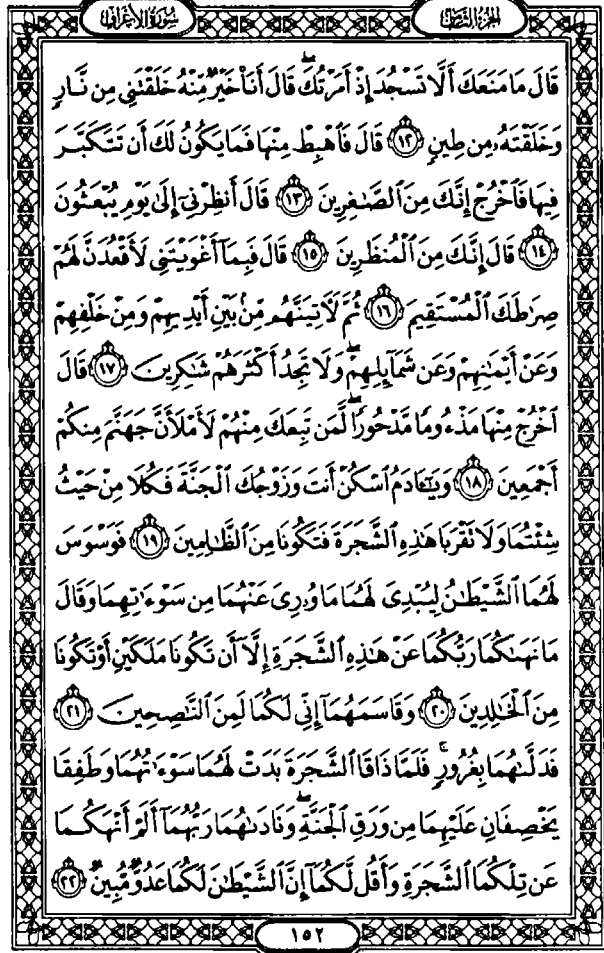 سُورَةُ الأَعْرَافِ
الجُزْءُ الثَّامِنُ
قَالَ مَا مَنَعَكَ أَلَّا تَسْجُدَ إِذْ أَمَرْتُكَۖ قَالَ أَنَا۠ خَيْرٌ مِّنْهُ خَلَقْتَنِي مِن نَّارٍ
وَخَلَقْتَهُۥ مِن طِينٍ ١٢ قَالَ فَٱهْبِطْ مِنْهَا فَمَا يَكُونُ لَكَ أَن تَتَكَبَّرَ
فِيهَا فَٱخْرُجْ إِنَّكَ مِنَ ٱلصَّٰغِرِينَ ١٣ قَالَ أَنظِرْنِيٓ إِلَىٰ يَوْمِ يُبْعَثُونَ
١٤ قَالَ إِنَّكَ مِنَ ٱلْمُنظَرِينَ ١٥ قَالَ فَبِمَآ أَغْوَيْتَنِي لَأَقْعُدَنَّ لَهُمْ
صِرَٰطَكَ ٱلْمُسْتَقِيمَ ١٦ ثُمَّ لَأٓتِيَنَّهُم مِّنۢ بَيْنِ أَيْدِيهِمْ وَمِنْ خَلْفِهِمْ
وَعَنْ أَيْمَٰنِهِمْ وَعَن شَمَآئِلِهِمْۖ وَلَا تَجِدُ أَكْثَرَهُمْ شَٰكِرِينَ ١٧ قَالَ
ٱخْرُجْ مِنْهَا مَذْءُومًا مَّدْحُورًاۖ لَّمَن تَبِعَكَ مِنْهُمْ لَأَمْلَأَنَّ جَهَنَّمَ مِنكُمْ
أَجْمَعِينَ ١٨ وَيَٰٓـَٔادَمُ ٱسْكُنْ أَنتَ وَزَوْجُكَ ٱلْجَنَّةَ فَكُلَا مِنْ حَيْثُ
شِئْتُمَا وَلَا تَقْرَبَا هَٰذِهِ ٱلشَّجَرَةَ فَتَكُونَا مِنَ ٱلظَّٰلِمِينَ ١٩ فَوَسْوَسَ
لَهُمَا ٱلشَّيْطَٰنُ لِيُبْدِيَ لَهُمَا مَا وُۥرِيَ عَنْهُمَا مِن سَوْءَٰتِهِمَا وَقَالَ
مَا نَهَىٰكُمَا رَبُّكُمَا عَنْ هَٰذِهِ ٱلشَّجَرَةِ إِلَّآ أَن تَكُونَا مَلَكَيْنِ أَوْ تَكُونَا
مِنَ ٱلْخَٰلِدِينَ ٢٠ وَقَاسَمَهُمَآ إِنِّي لَكُمَا لَمِنَ ٱلنَّٰصِحِينَ ٢١
فَدَلَّىٰهُمَا بِغُرُورٍۚ فَلَمَّا ذَاقَا ٱلشَّجَرَةَ بَدَتْ لَهُمَا سَوْءَٰتُهُمَا وَطَفِقَا
يَخْصِفَانِ عَلَيْهِمَا مِن وَرَقِ ٱلْجَنَّةِۖ وَنَادَىٰهُمَا رَبُّهُمَآ أَلَمْ أَنْهَكُمَا
عَن تِلْكُمَا ٱلشَّجَرَةِ وَأَقُل لَّكُمَآ إِنَّ ٱلشَّيْطَٰنَ لَكُمَا عَدُوٌّ مُّبِينٌ ٢٢
١٥٢